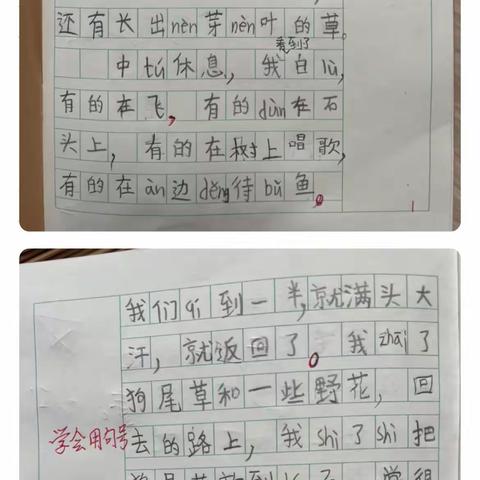 还有长出nèn芽nèn叶的草。
看到了
中tú休息，我白lù，
有的在飞，有的dūn在石
头上，有的在树上唱歌，
有的在àn边děng待bǔ鱼。
我们qí到一半，就满头大
汗，就返回了。我zhāi了
狗尾草和一些野花，回
学会用句号
去的路上，我shì了shì把